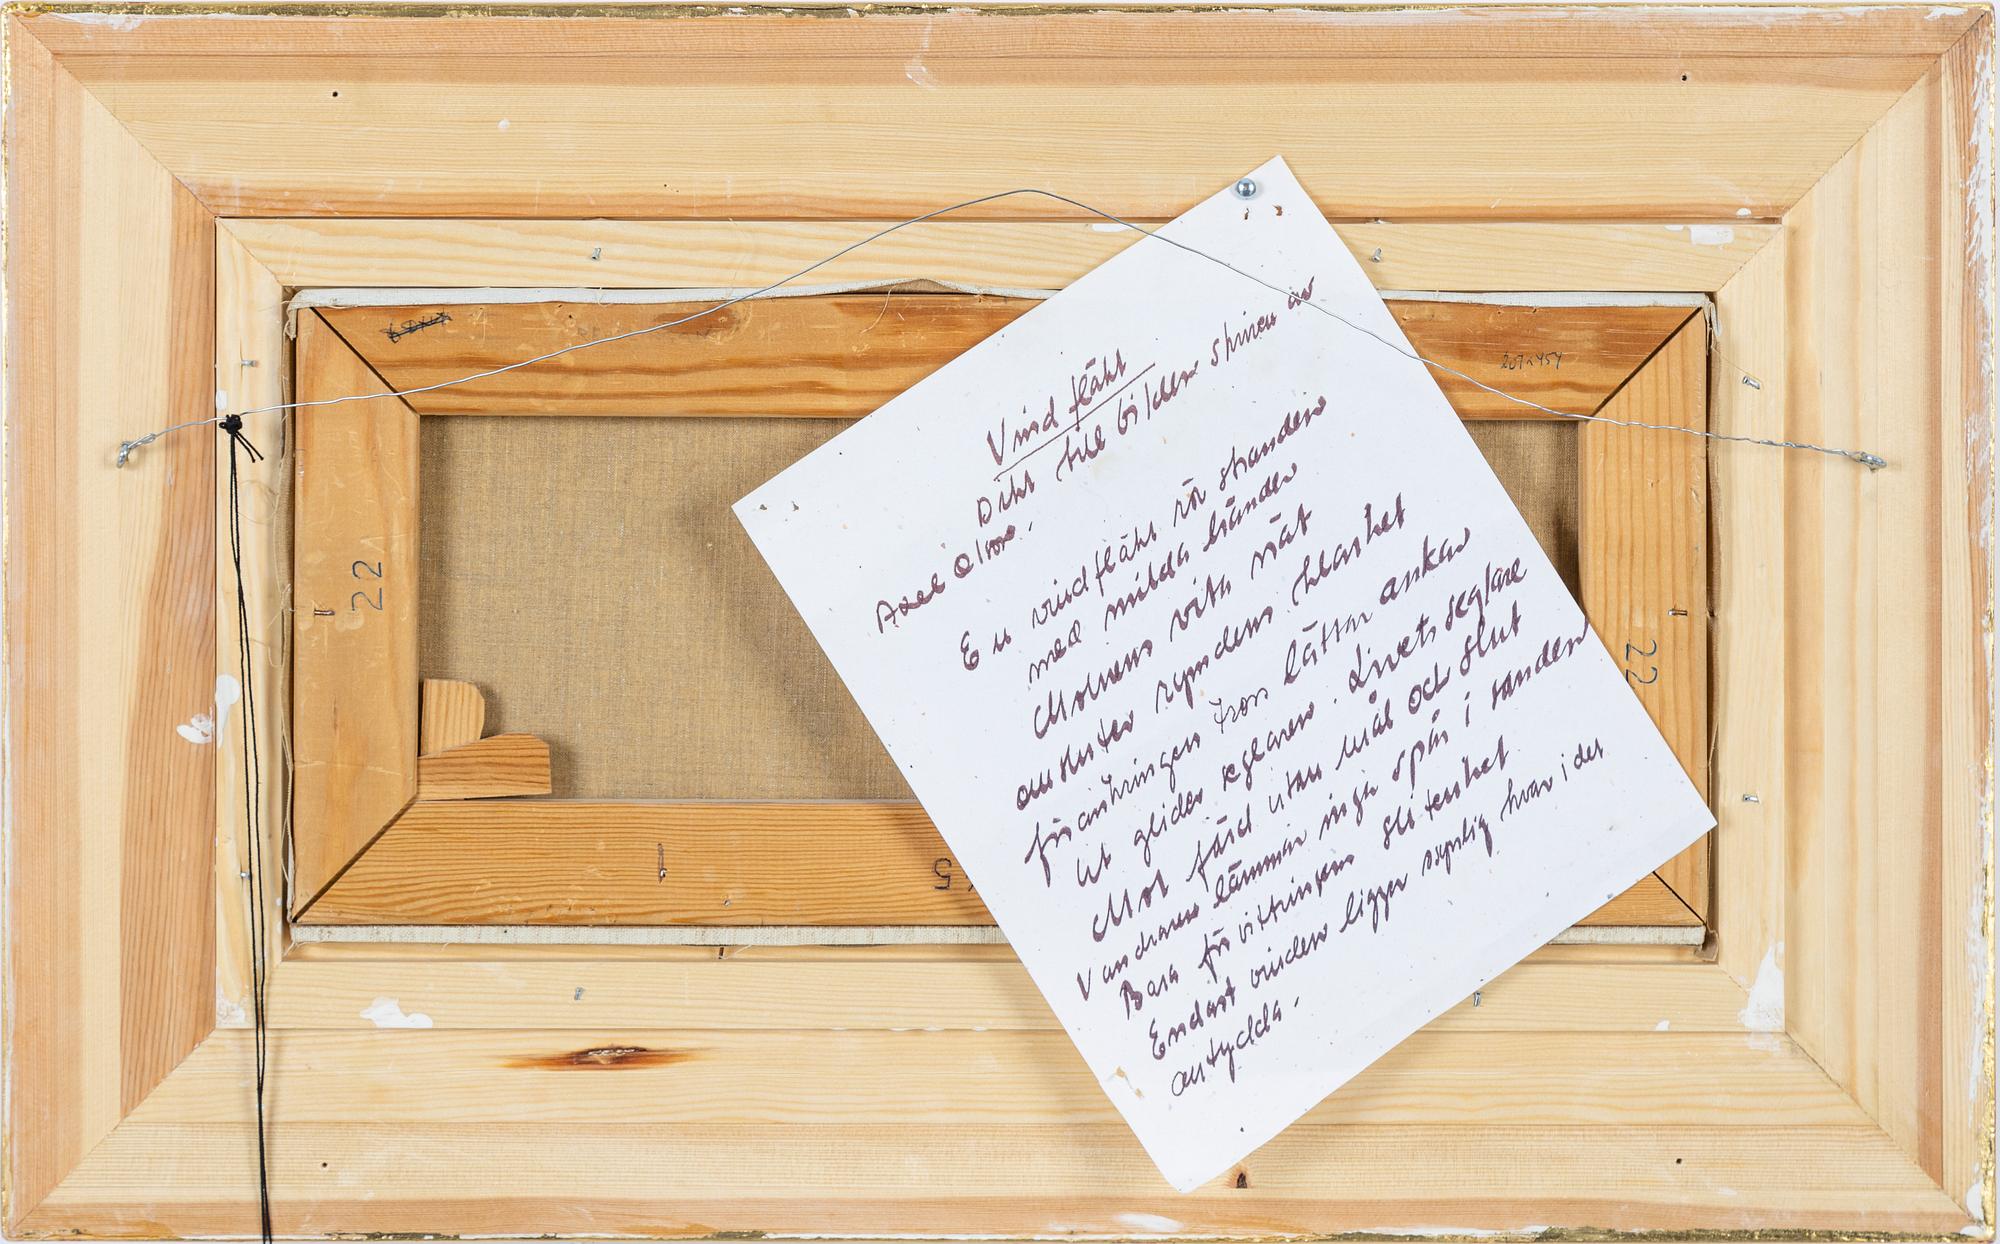 207×454
22
22
5
Vindfläkt
Dikt till bilden skriven av
Axel Olson.
En vindfläkt rör stranden
med milda händer
Molnens vita nät
rymdens klarhet
förankringen lättar ankar
Ut glider seglaren. Livets seglare
Mot färd utan mål och slut
Vandraren lämnar inga spår i sanden
Bara förvittringens
Endast vinden ligger osynlig kvar i det
antydda.